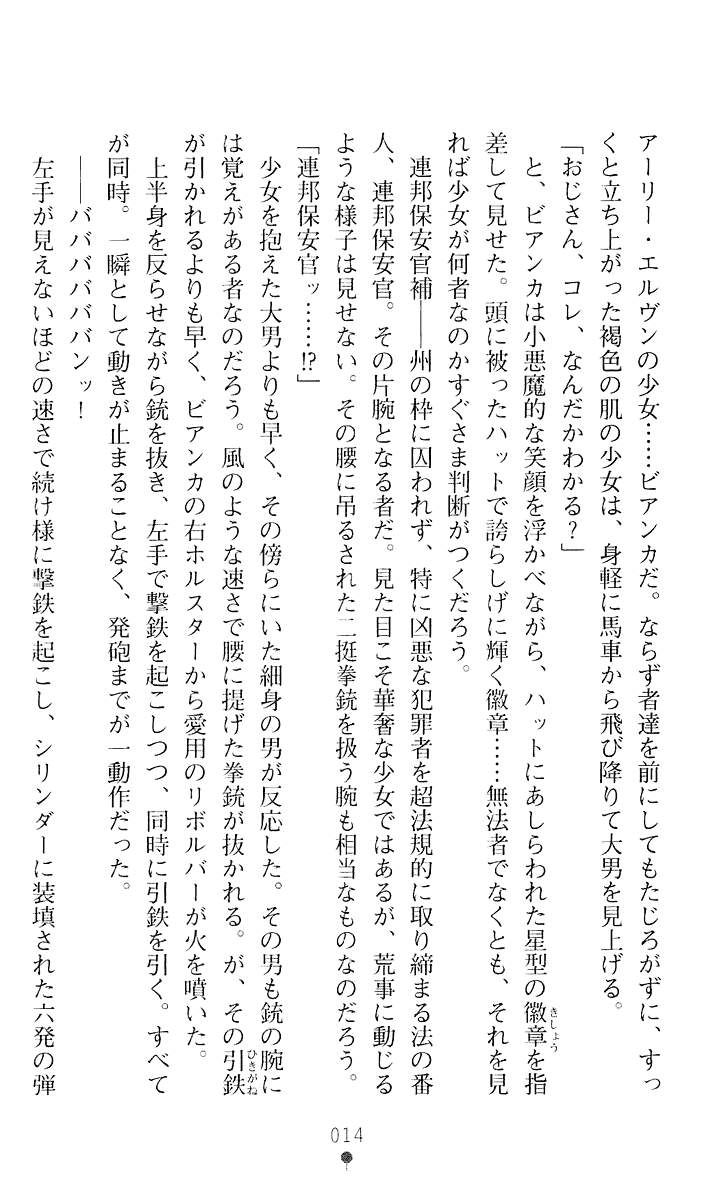 アーリー・エルヴンの少女……ビアンカだ。ならず者達を前にしてもたじろがずに、すっ
くと立ち上がった褐色の肌の少女は、身軽に馬車から飛び降りて大男を見上げる。
「おじさん、コレ、なんだかわかる？」
　と、ビアンカは小悪魔的な笑顔を浮かべながら、ハットにあしらわれた星型の徽章を指
きしょう
差して見せた。頭に被ったハットで誇らしげに輝く徽章……無法者でなくとも、それを見
れば少女が何者なのかすぐさま判断がつくだろう。
　連邦保安官補――州の枠に囚われず、特に凶悪な犯罪者を超法規的に取り締まる法の番
人、連邦保安官。その片腕となる者だ。見た目こそ華奢な少女ではあるが、荒事に動じる
ような様子は見せない。その腰に吊るされた二挺拳銃を扱う腕も相当なものなのだろう。
「連邦保安官ッ……!?」
　少女を抱えた大男よりも早く、その傍らにいた細身の男が反応した。その男も銃の腕に
は覚えがある者なのだろう。風のような速さで腰に提げた拳銃が抜かれる。が、その引鉄
ひきがね
が引かれるよりも早く、ビアンカの右ホルスターから愛用のリボルバーが火を噴いた。
　上半身を反らせながら銃を抜き、左手で撃鉄を起こしつつ、同時に引鉄を引く。すべて
が同時。一瞬として動きが止まることなく、発砲までが一動作だった。
　――バババババンッ！
　左手が見えないほどの速さで続け様に撃鉄を起こし、シリンダーに装填された六発の弾
014